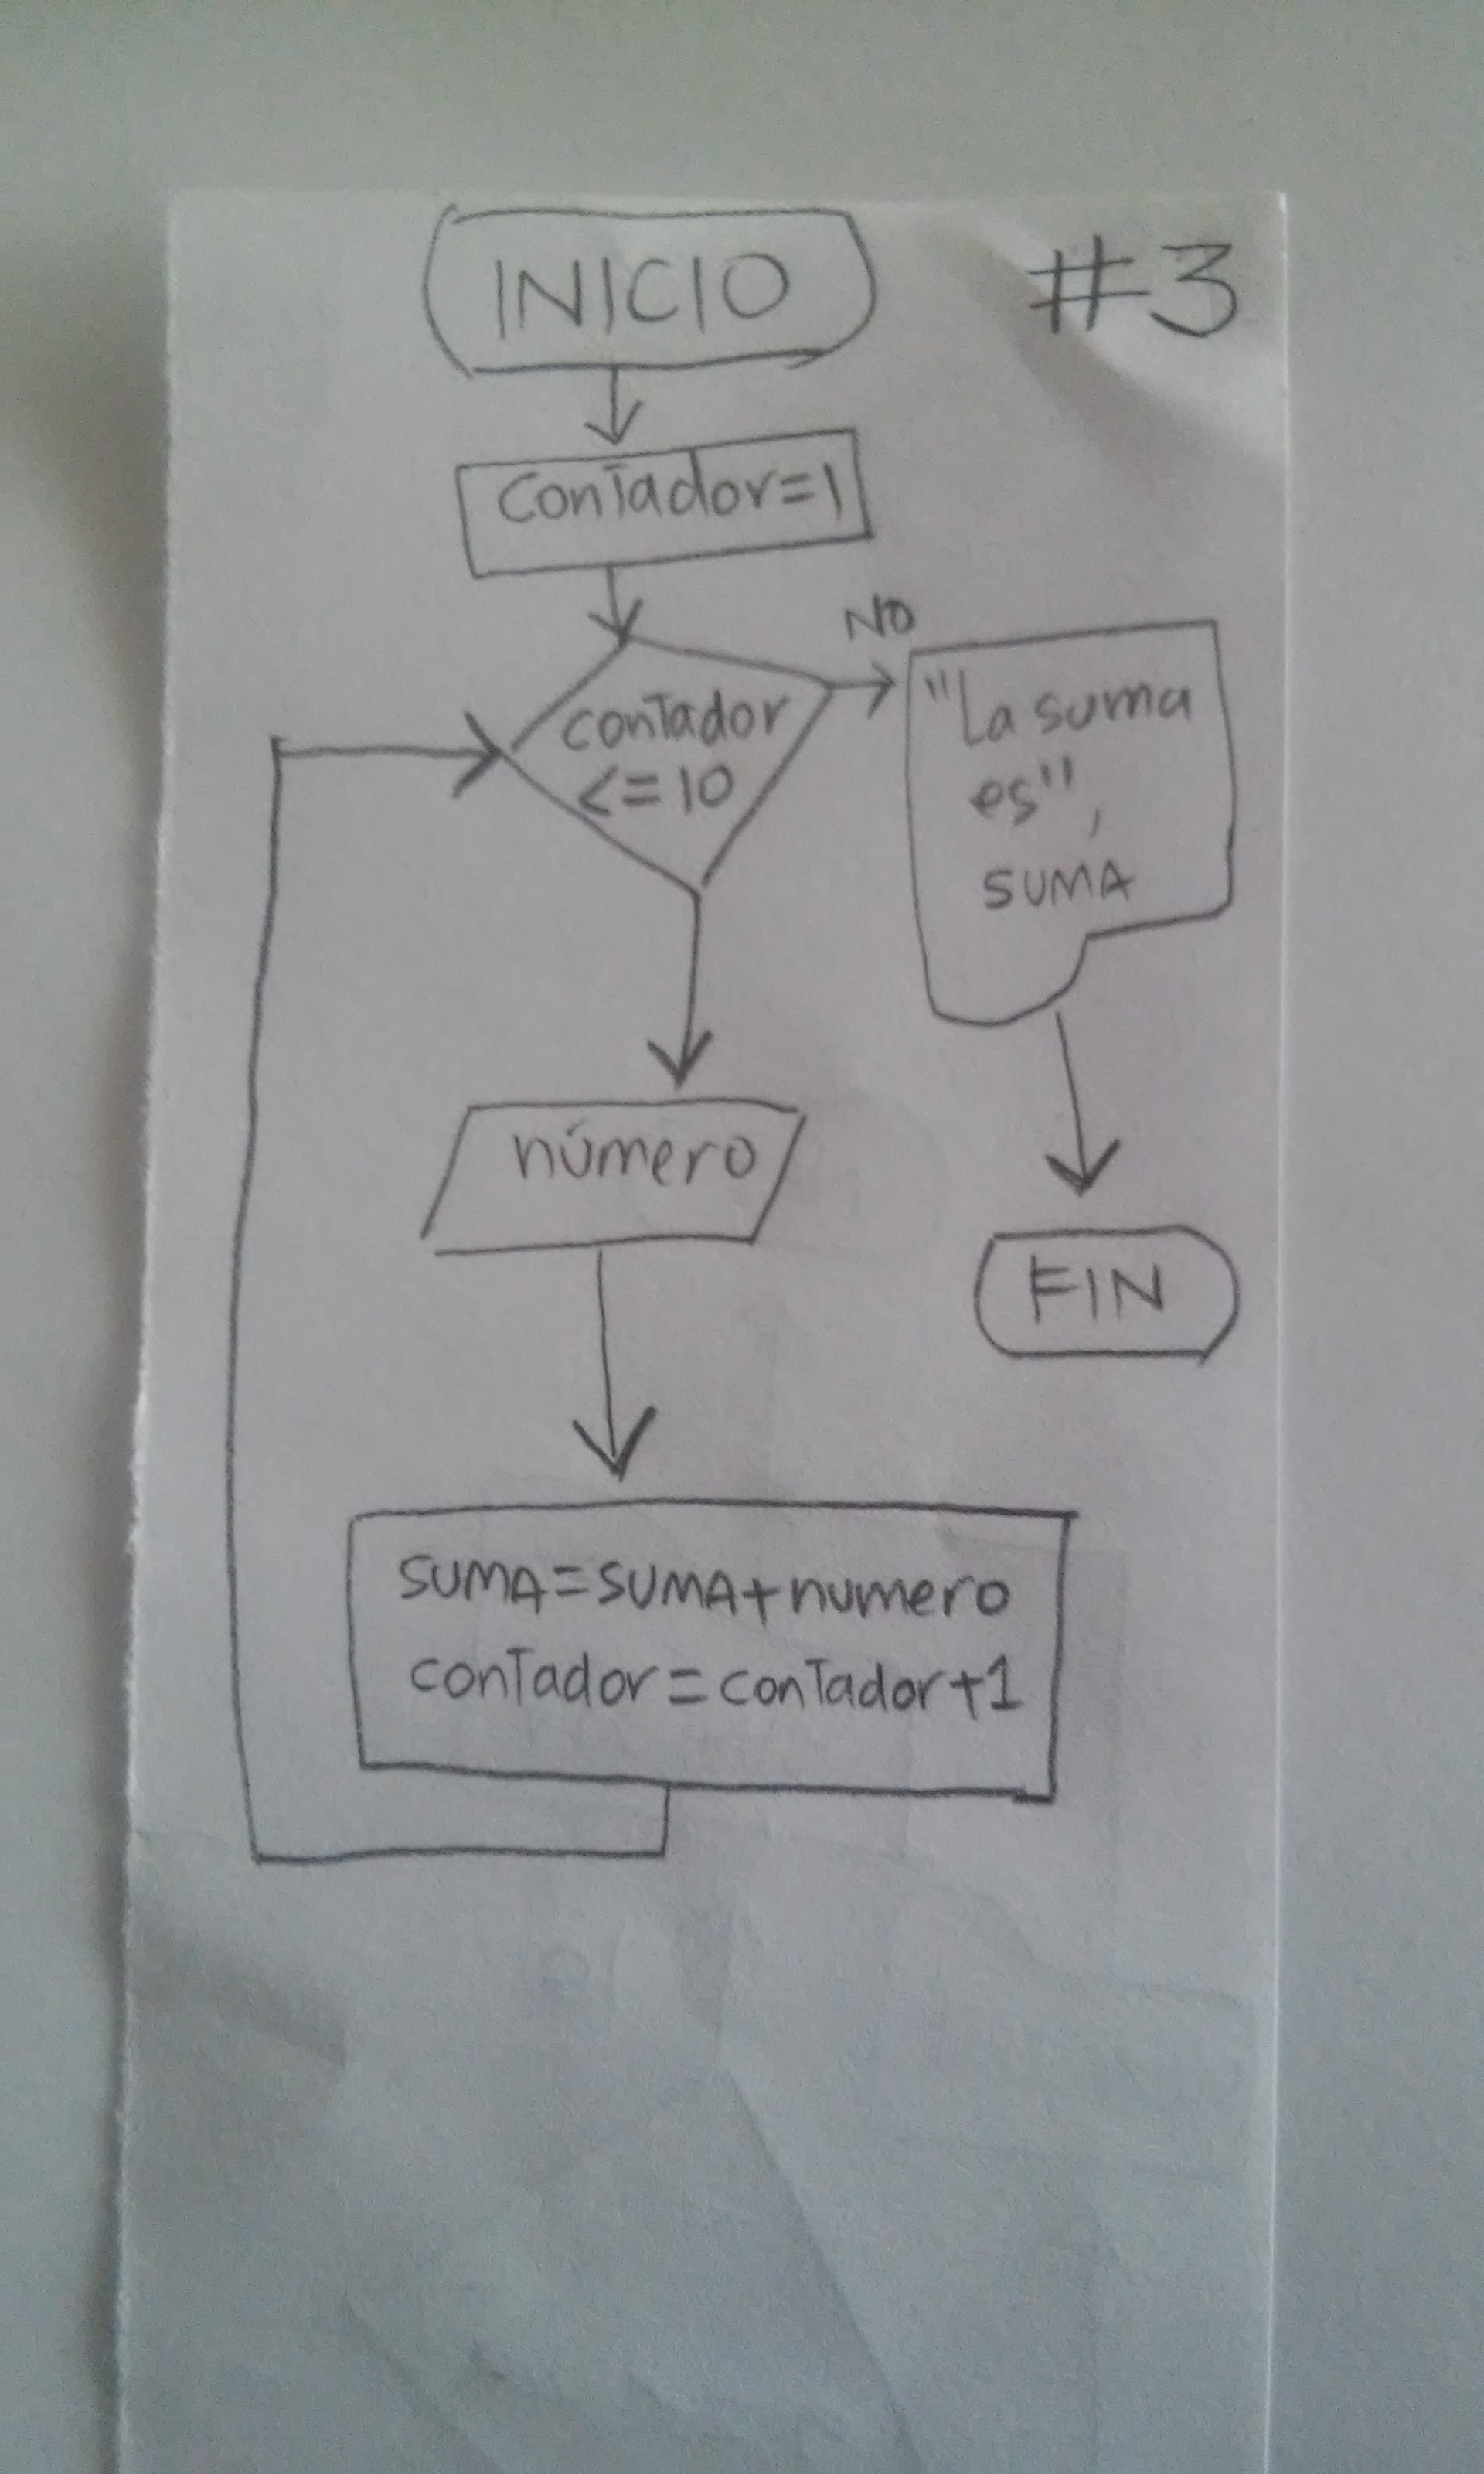 INICIO
#3
contador=1
NO
contador
<=10
"La suma
es",
SUMA
número
FIN
SUMA=SUMA+numero
contador=contador+1